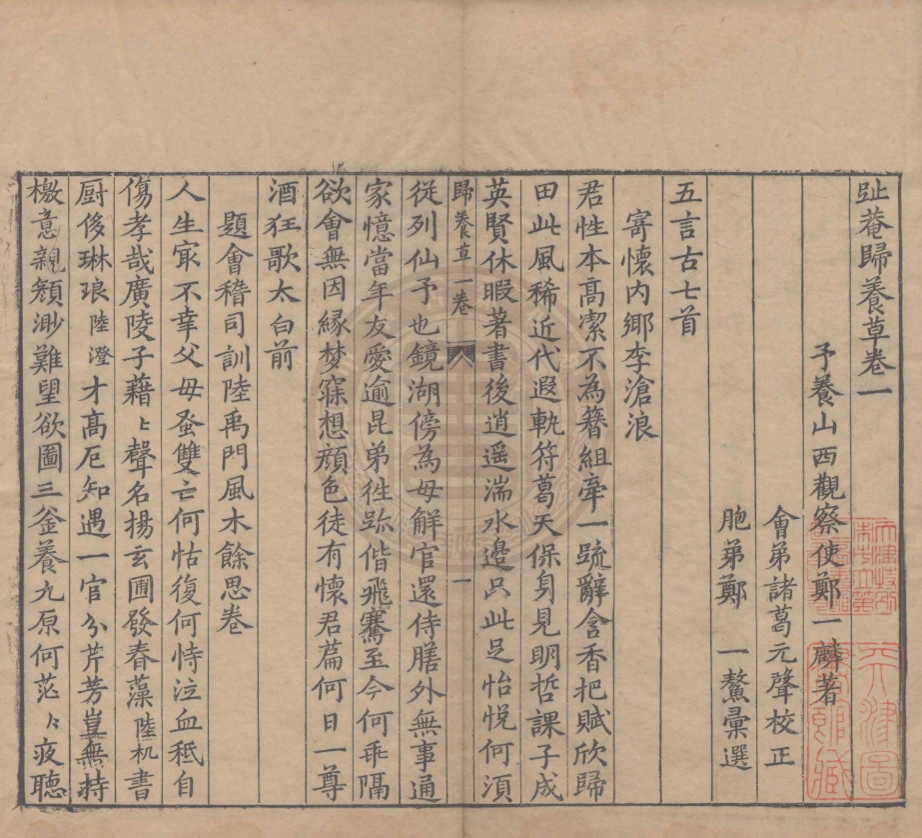 歸養草卷一
予養山西觀察使鄭一麟著
會弟諸葛元聲校正
胞弟鄭一鰲彙選
五言古七首
寄懷內鄉李滄浪
君性本高潔不為簪組牽一疏辭含香把賦欣歸
田此風稀近代遐軌符葛天保身見明哲課子成
英賢休暇著書後逍遥湍水邉只此足怡悦何湏
歸養草一卷 一
從列仙予也鏡湖傍為母解官還侍膳外無事通
家憶當年友愛逾昆弟徃跡偕飛騫至今何乖隔
欲會無因緣梦寐想顔色徒有懷君篇何日一尊
酒狂歌太白前
題會稽司訓陸禹門風木餘思卷
人生冣不幸父母蚤雙亡何怙復何恃泣血秪自
傷孝哉廣陵子藉〻聲名揚玄圃發春藻陸机書
厨侈琳琅陸澄才高厄知遇一官分芹芳豈無持
檄意親顔渺難望欲圖三釜養九原何茫〻疲聽